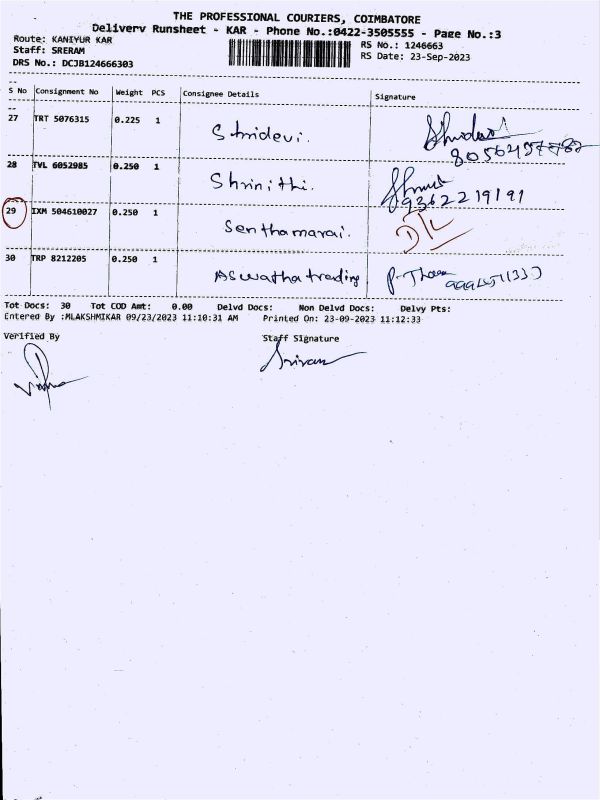 THE PROFESSIONAL COURIERS, COIMBATORE
Delivery Runsheet - KAR - Phone No.:0422-3505555 - Page No.:3
Route: KANIYUR KAR
RS No.: 1246663
Staff: SRERAM
RS Date: 23-Sep-2023
DRS No.: DCJB124666303
S No Consignment No Weight PCS Consignee Details Signature
27 TRT 5076315 0.225 1 Shridevi.
28 TVL 6052985 0.250 1 Shrinithi. 9362219191
29 IXM 504610027 0.250 1 Senthamarai. DTL
30 TRP 8212205 0.250 1 Aswatha trading
Tot Docs: 30 Tot COD Amt: 0.00 Delvd Docs: Non Delvd Docs: Delvy Pts:
Entered By :MLAKSHMIKAR 09/23/2023 11:10:31 AM Printed On: 23-09-2023 11:12:33
Verified By Staff Signature